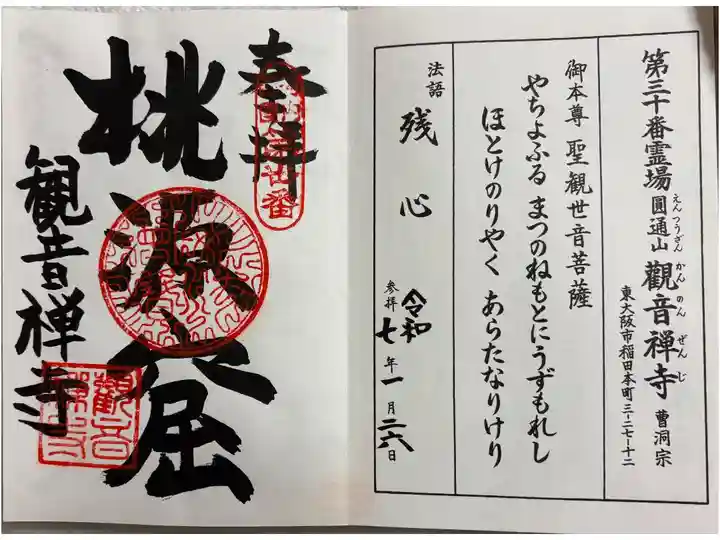 第三十番霊場 圓通山 觀音禅寺 曹洞宗
えんつうざん かんのんぜんじ
東大阪市稲田本町三-二七-十二
御本尊 聖観世音菩薩
やちよふる まつのねもとにうずもれし
ほとけのりやく あらたなりけり
法語 残心
参拝 令和七年一月二六日
奉拝
桃源窟
観音禅寺